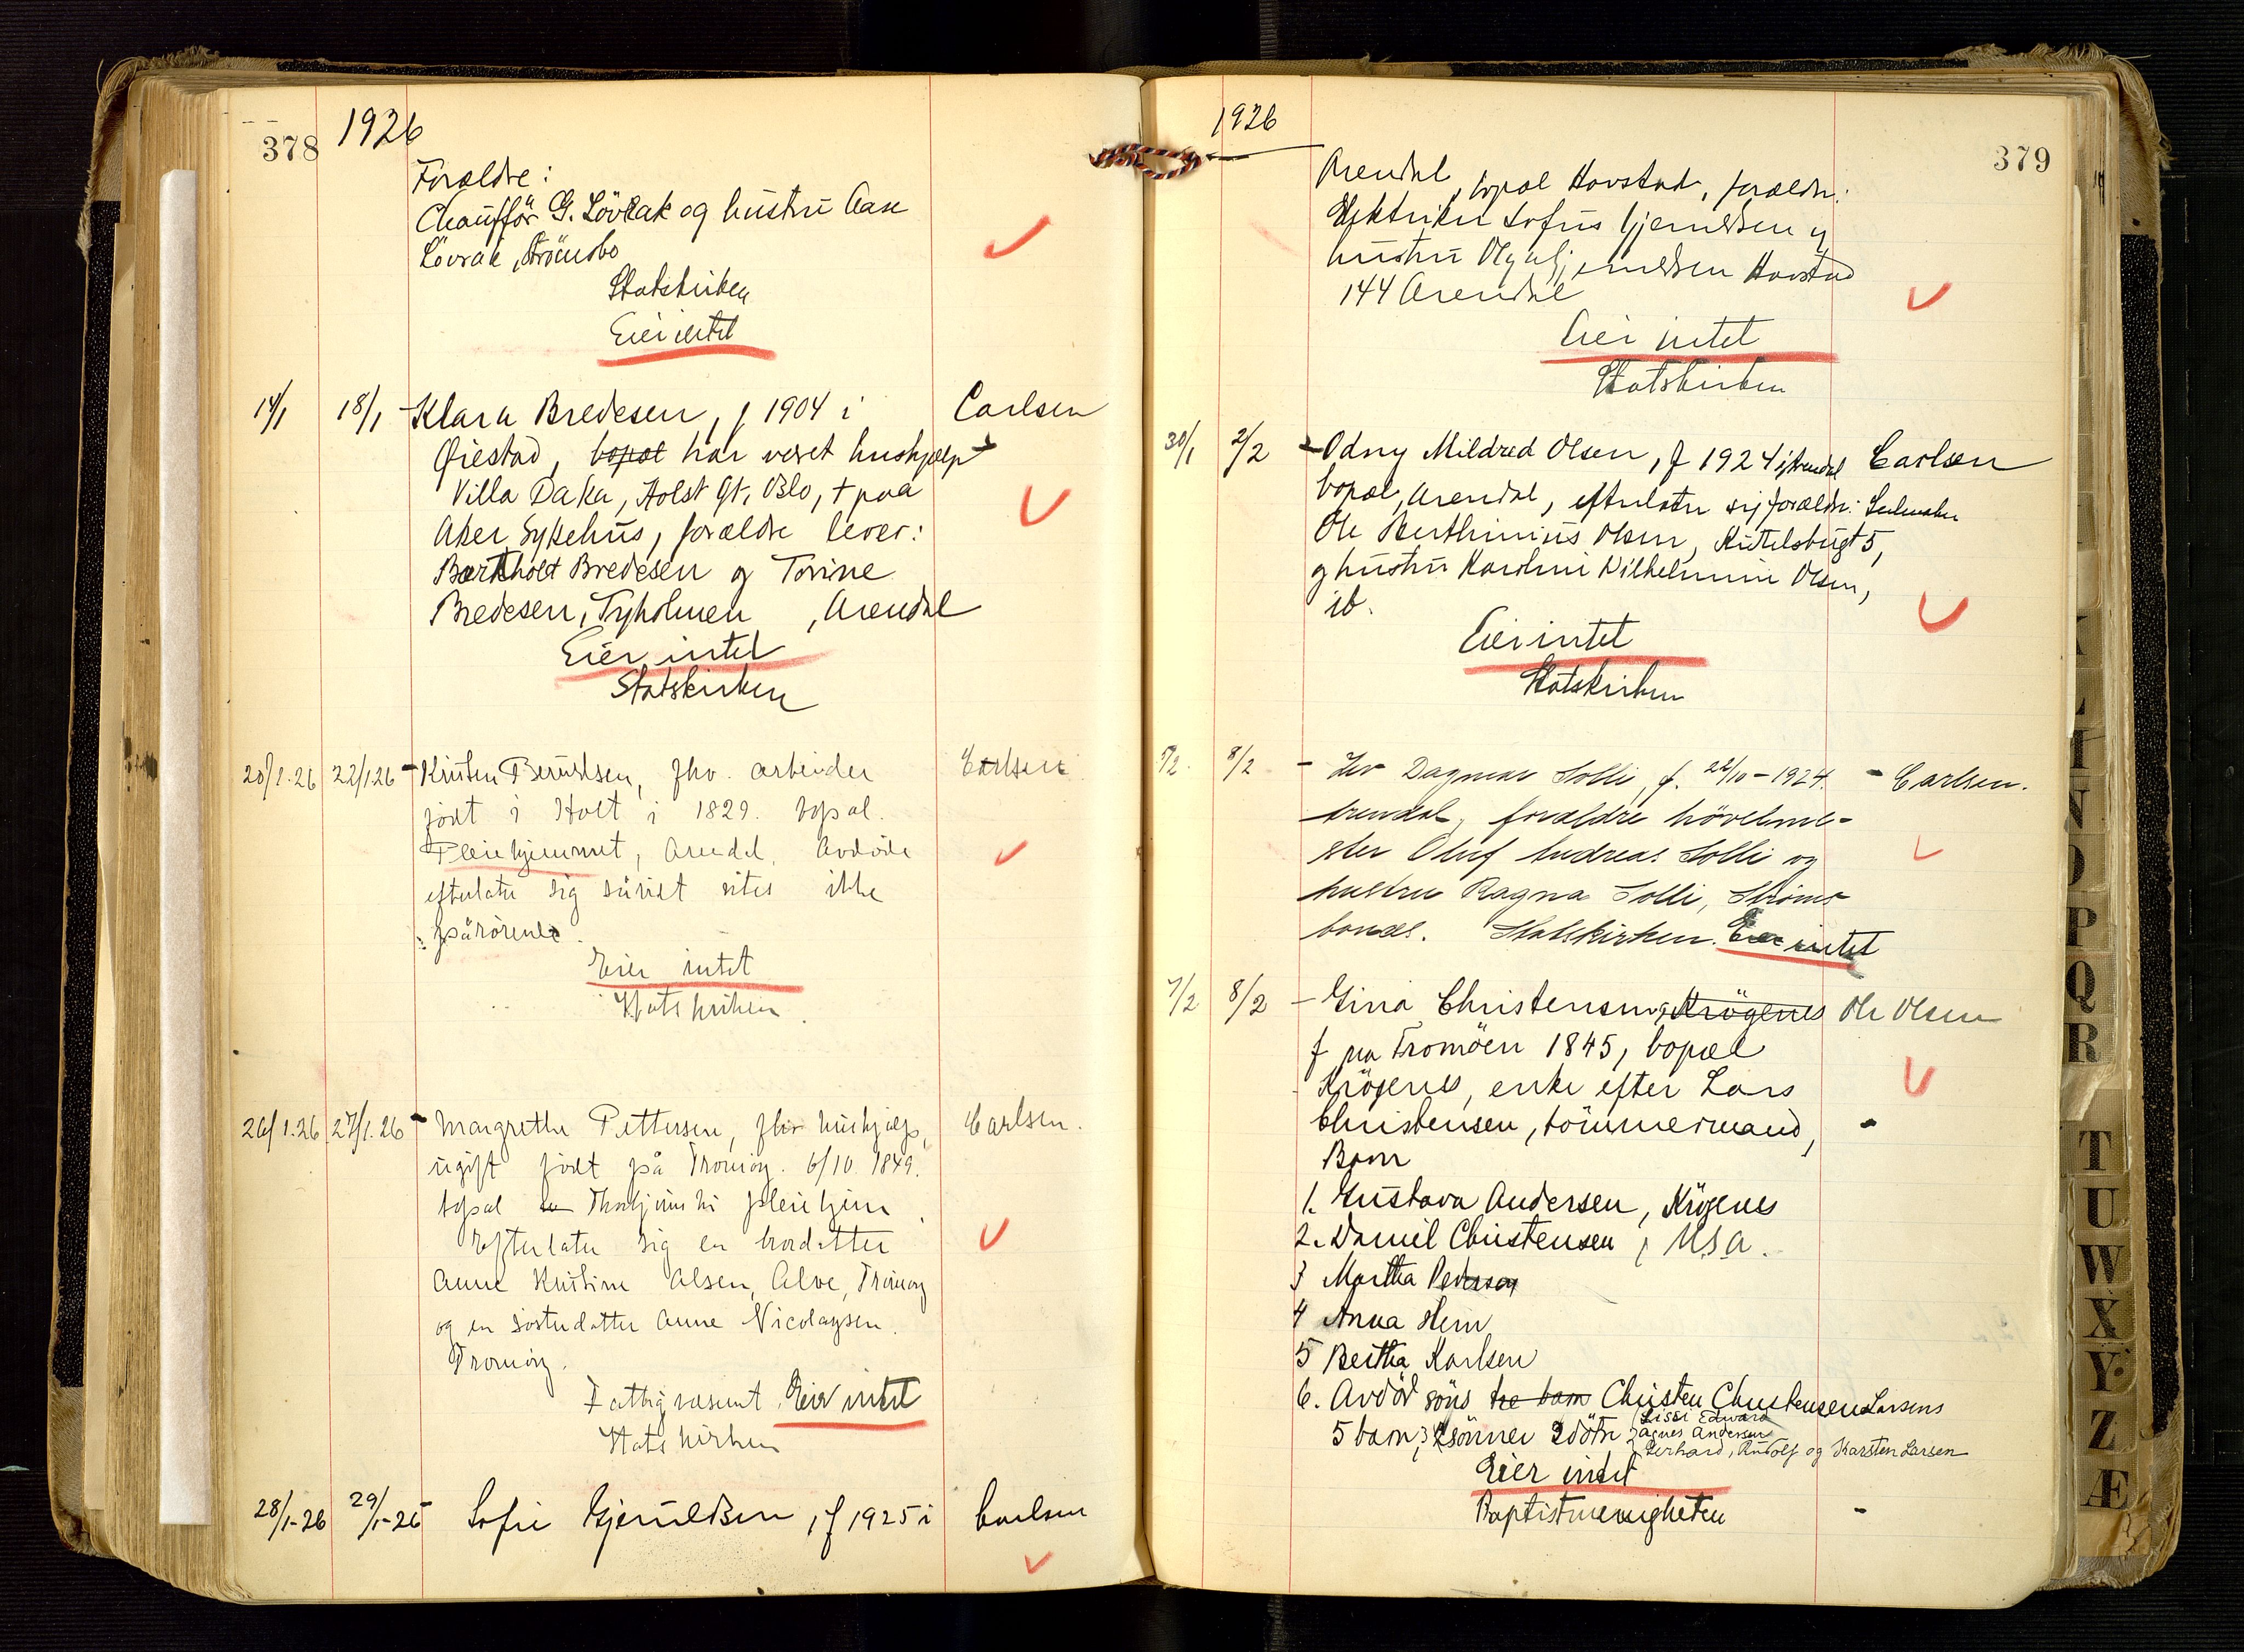 378
1926
Forældre:
Chauffør G. Lövrak og hustru Aase
Lövrak, Strömsbo
Statskirken
Eier intet
14/1 18/1 - Klara Bredesen, f 1904 i Carlsen
Øiestad, bopæl har været hushjælp
Villa Daka, Holst Gt, Oslo, + paa
Aker Sykehus, forældre lever:
Bertholt Bredesen og Torine
Bredesen, Tyholmen, Arendal
Eier intet
Statskirken
20/1.26 22/1 26 - Kristen Berntsen, fhv. arbeider Carlsen
født i Holt i 1829. bopæl.
Pleiehjemmet, Arendal. Avdøde
efterlater sig såvidt vites ikke
pårørende.
Eier intet
Statskirken.
26/1.26 27/1.26 - Margrethe Pettersen, fhv hushjælp, Carlsen.
ugift født på Tromøy. 6/10. 1849.
bopæl pleiehjem
Efterlater sig en brordatter
Anne Kristine Olsen, Alve, Tromøy
og en søsterdatter Anne Nicolaysen.
Tromøy.
Fattigvæsenet. Eier intet
Statskirken
28/1-26 29/1-26 Sofie Gjeruldsen, f 1925 i Carlsen
1926
379
Arendal, bopæl Havstad, forældre:
Elektriker Sofus Gjeruldsen og
hustru Olga Gjeruldsen Havstad
144 Arendal
Eier intet
Statskirken
30/1 2/2 - Odny Mildred Olsen, f 1924 i Arendal Carlsen
bopæl, Arendal, efterlater sig forældre: Seilmaker
Ole Berthinius Olsen, Kittelsbugt 5,
og hustru Karoline Wilhelmine Olsen,
ib.
Eier intet
Statskirken
7/2. 8/2 - Liv Dagmar Solli, f. 22/10-1924. - Carlsen.
Arendal, forældre hövelme-
ster Oluf Andreas Solli og
hustru Ragna Solli, Strøms-
boneset. Statskirken. Eier intet
7/2 8/2 - Gina Christensen, Krögenes Ole Olsen
f paa Tromöen 1845, bopæl
Krögenes, enke efter Lars
Christensen, tömmermand,
Barn
1. Gustava Andersen, Krögenes
2. Daniel Christensen, U.S.A.
3 Martha Pederson
4 Anna Hein
5 Bertha Karlsen
6. Avdöd söns tre barn Christen Christensen Larsens
5 barn, 3 sönner 2 dötre (Lissi Edward
Agnes Andersen
Gerhard, Rudolf og Karsten Larsen
Eier intet
Baptistmenigheten
K
L
N
O
P
Q
R
T
U
W
X
Y
Z
Æ